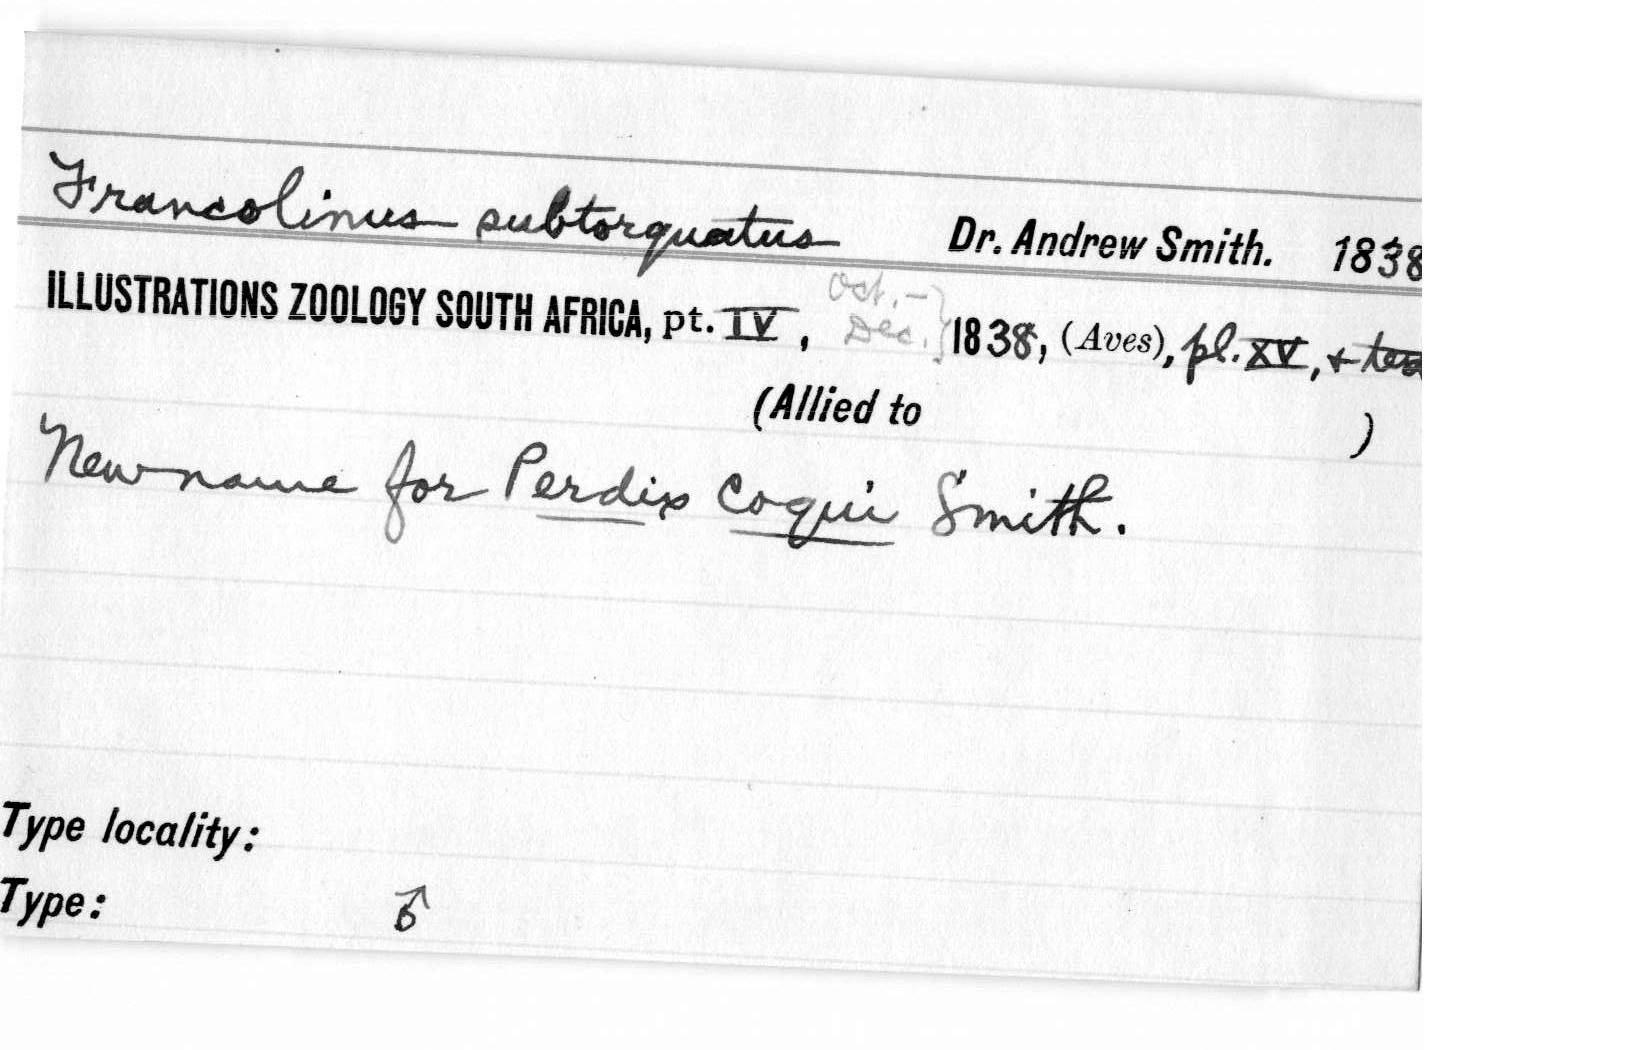 Francolinus subtorquatus Dr. Andrew Smith. 1838
ILLUSTRATIONS ZOOLOGY SOUTH AFRICA, pt. IV, Oct.- Dec.} 1838, (Aves), pl. XV, +
(Allied to )
New name for Perdix Coqui Smith.
Type locality:
Type: ♂